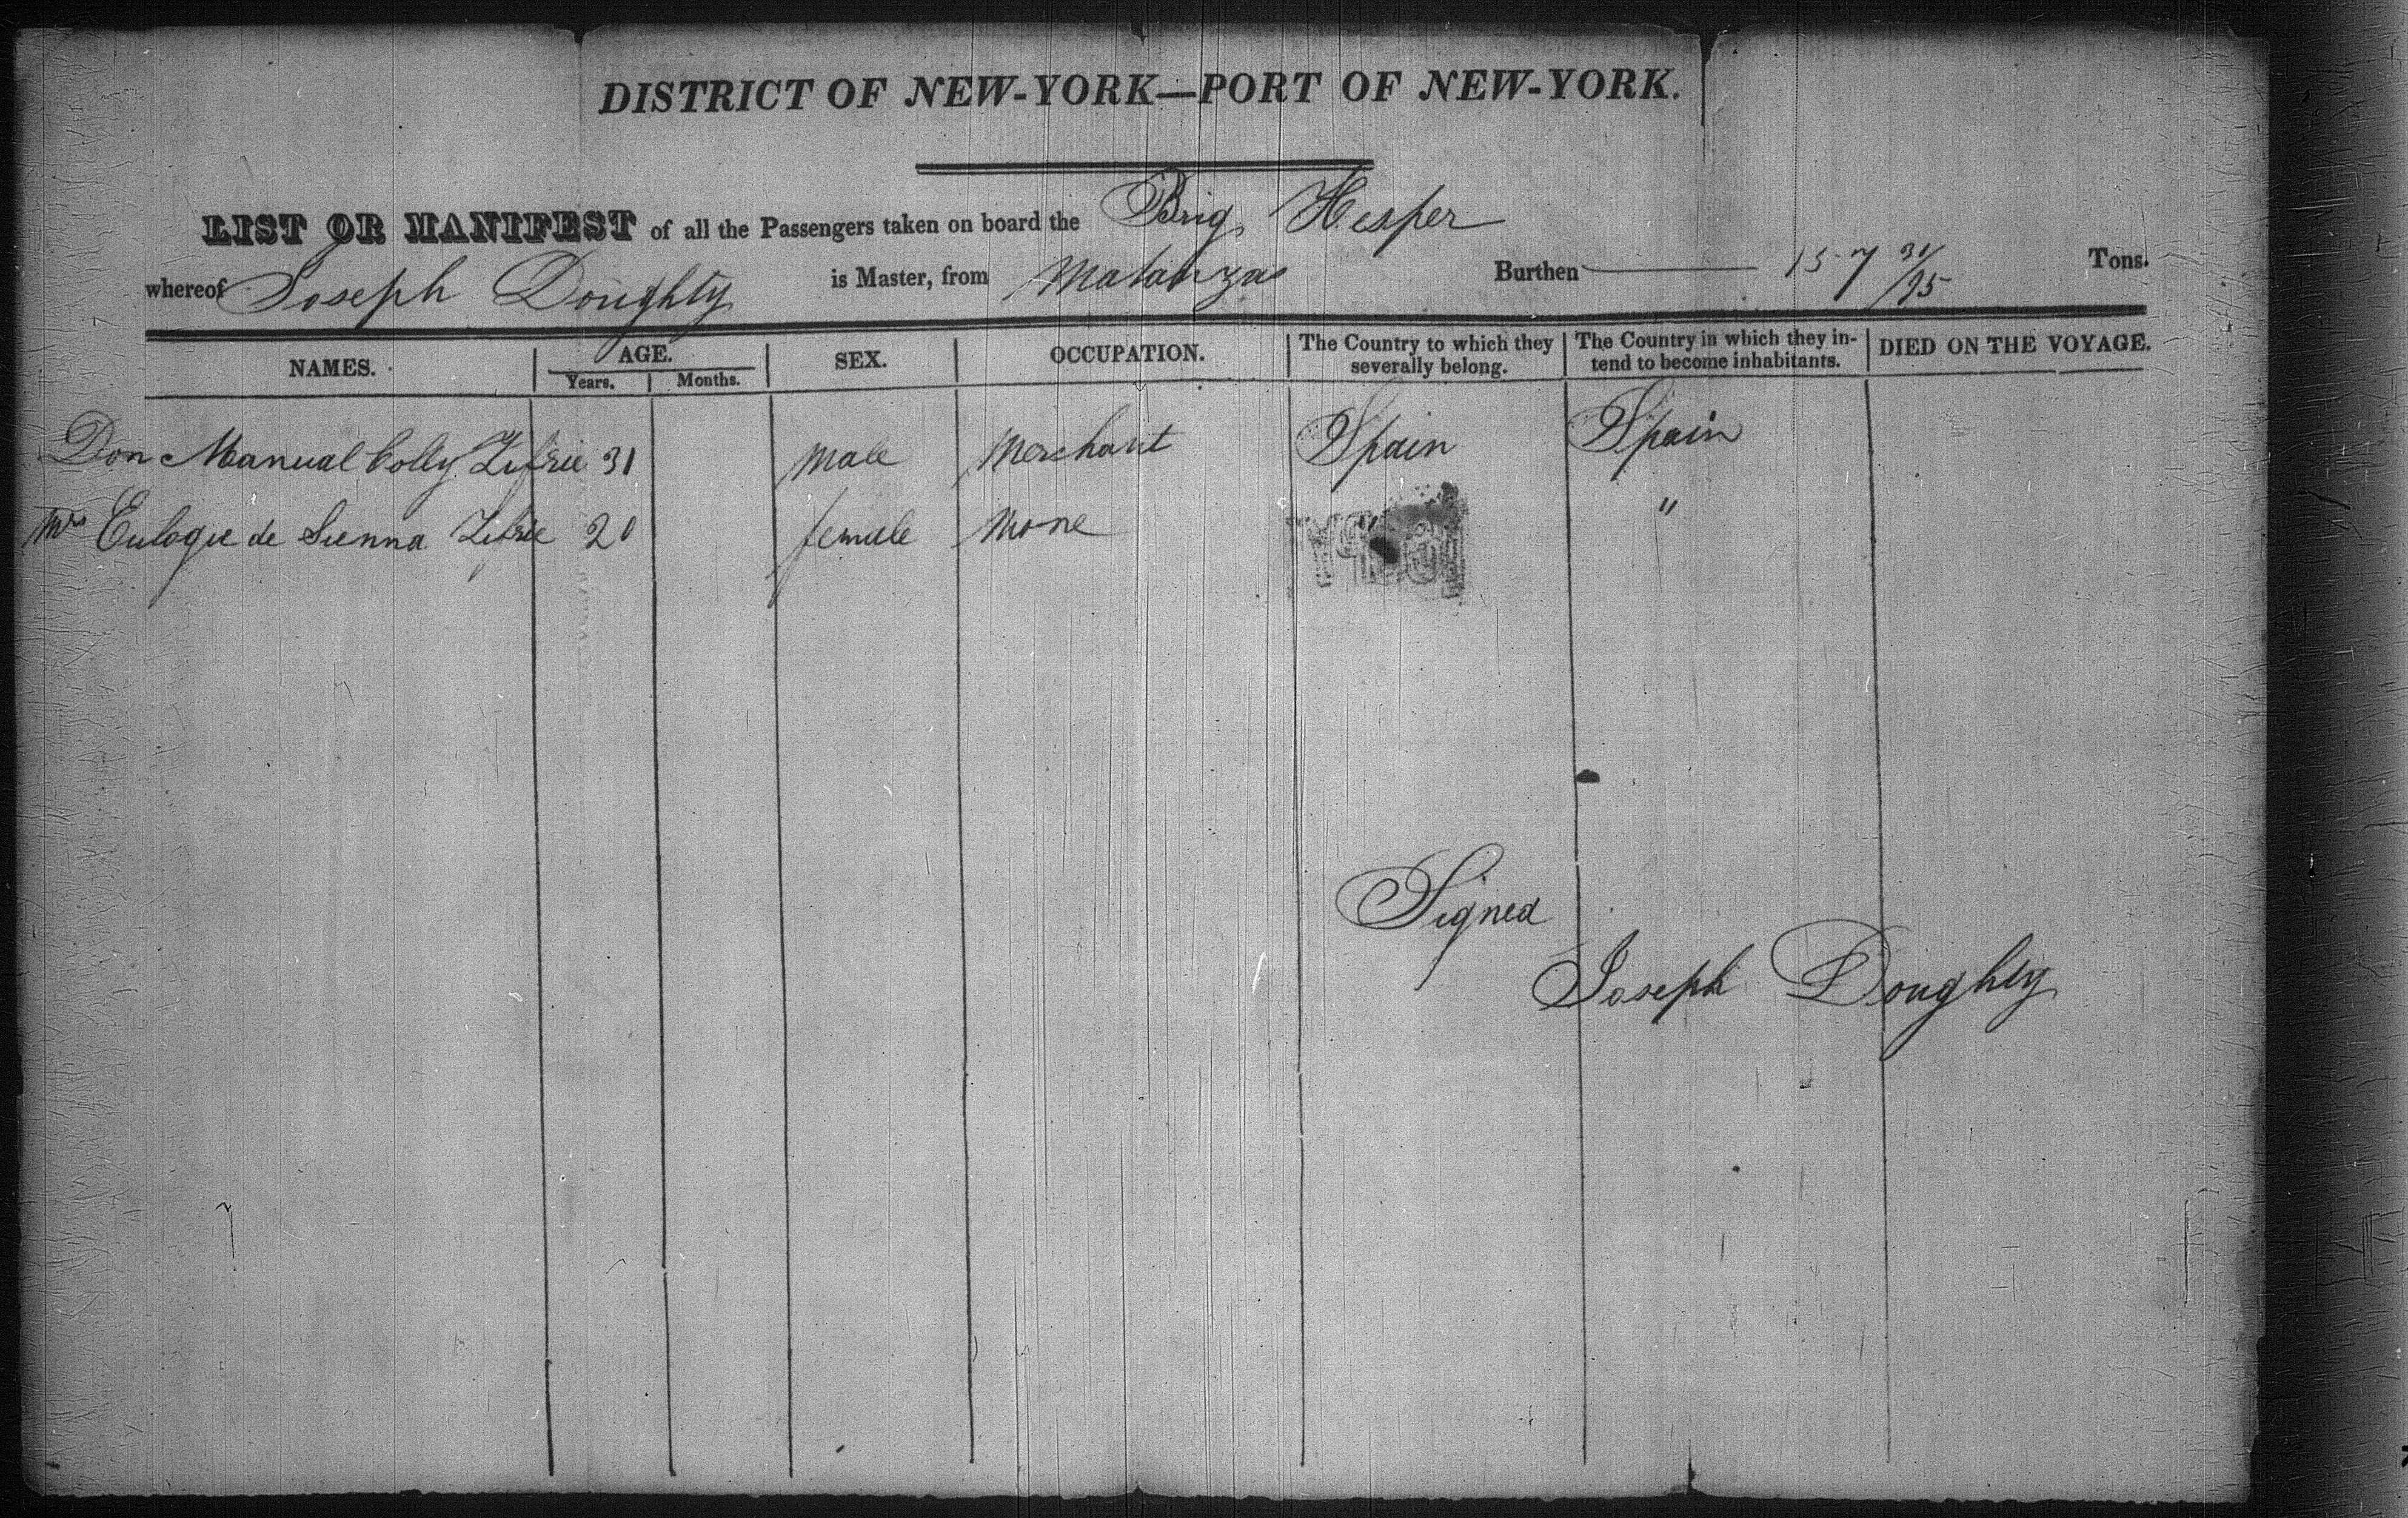 DISTRICT OF NEW-YORK—PORT OF NEW-YORK.
LIST OR MANIFEST of all the Passengers taken on board the Brig Hesper
whereof Joseph Doughty is Master, from Matanzas Burthen 157 31/95 Tons.
NAMES. AGE. Years. Months. SEX. OCCUPATION. The Country to which they severally belong. The Country in which they intend to become inhabitants. DIED ON THE VOYAGE.
Don Manual Colly 31 male Merchant Spain Spain
Mrs Eulogie de Sienna 20 female None " "
Signed
Joseph Doughty